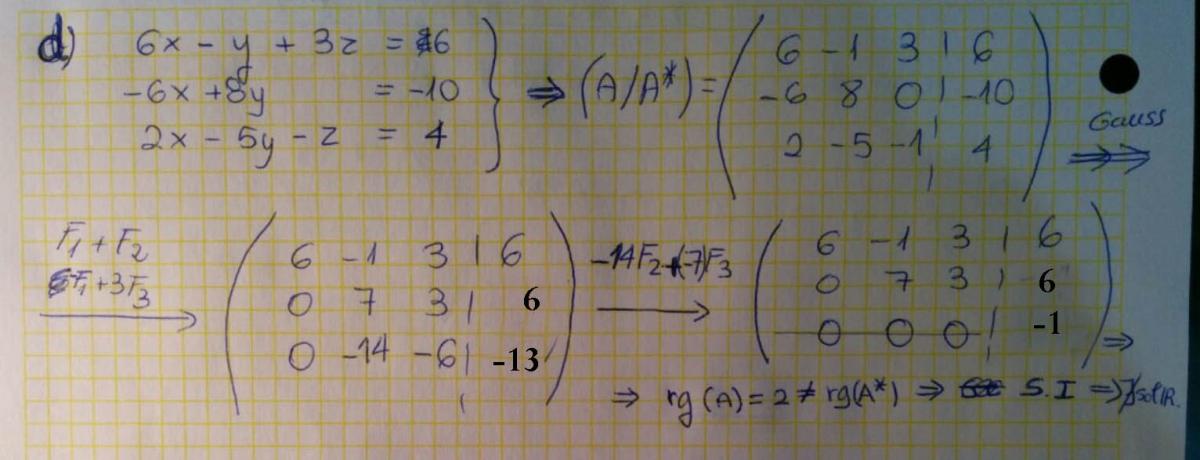 d) 6x - y + 3z = 6
-6x + 8y = -10
2x - 5y - z = 4
⇒ (A/A*) =
6 -1 3 | 6
-6 8 0 | -10
2 -5 -1 | 4
Gauss
F1 + F2
-F1 + 3F3
6 -1 3 | 6
0 7 3 | 6
0 -14 -6 | -13
-14F2 + (-7)F3
6 -1 3 | 6
0 7 3 | 6
0 0 0 | -1
⇒
⇒ rg (A) = 2 ≠ rg(A*) ⇒ S.I ⇒ ∄ sol IR.